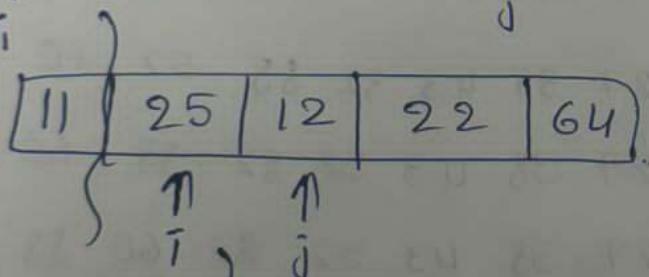 i j
11 25 12 22 64
↑ ↑
i, j